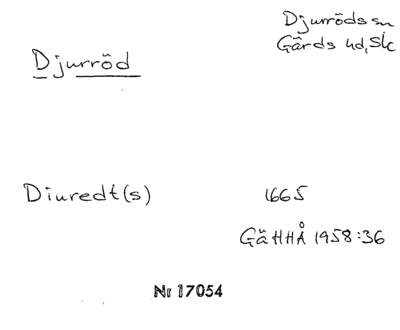 Djurröds sn
Gärds hd, Sk
Djurröd
Diuredt(s)
1665
GäHHÅ 1958:36
Nr 17054